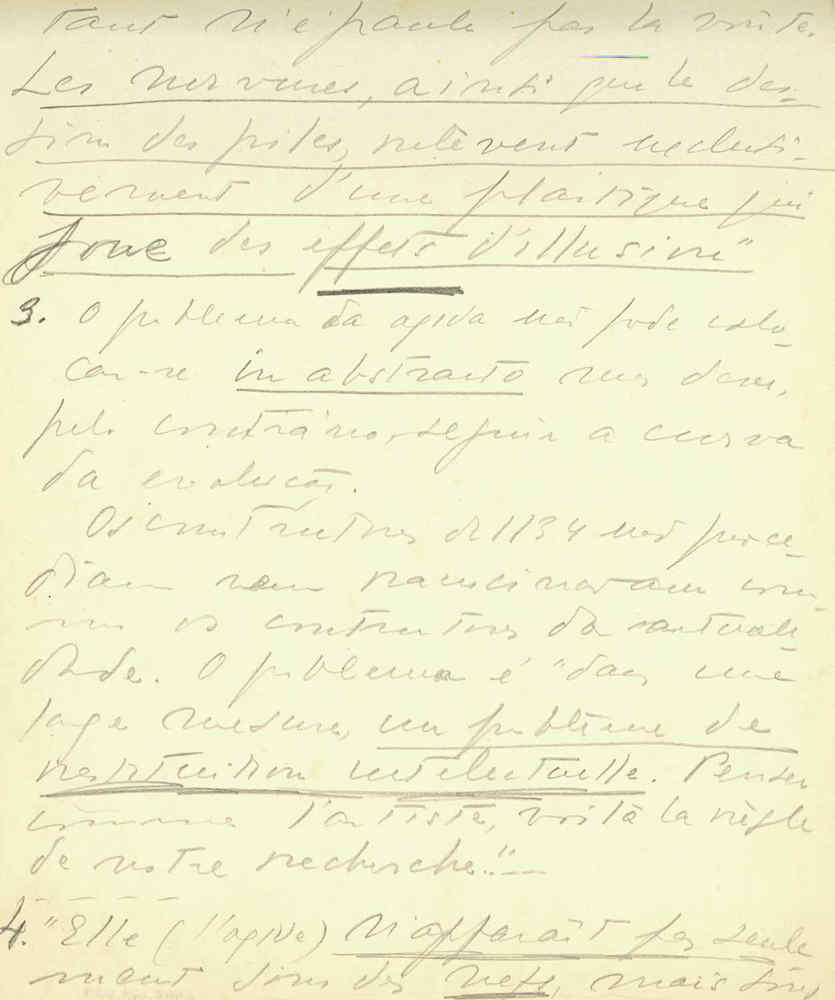 tant n'épaule pas la voûte.
Les nervures, ainsi que le des-
sin des piles, relèvent exclusi-
vement d'une plastique qui
joue des effets d'illusion"
3. O problema da ogiva não pode colo-
car-se in abstracto mas deve,
pelo contrário, seguir a curva
da evolução.
Os construtores de 1134 não proce-
diam nem raciocinavam com-
mo os construtores da actuali-
dade. O problema é "dans une
large mesure, un problème de
restituition intelectuelle. Penser
comme l'artiste, voilà la règle
de notre recherche."—
4. "Elle (l'ogive) n'apparaît pas seule
ment dans des nefs, mais dans